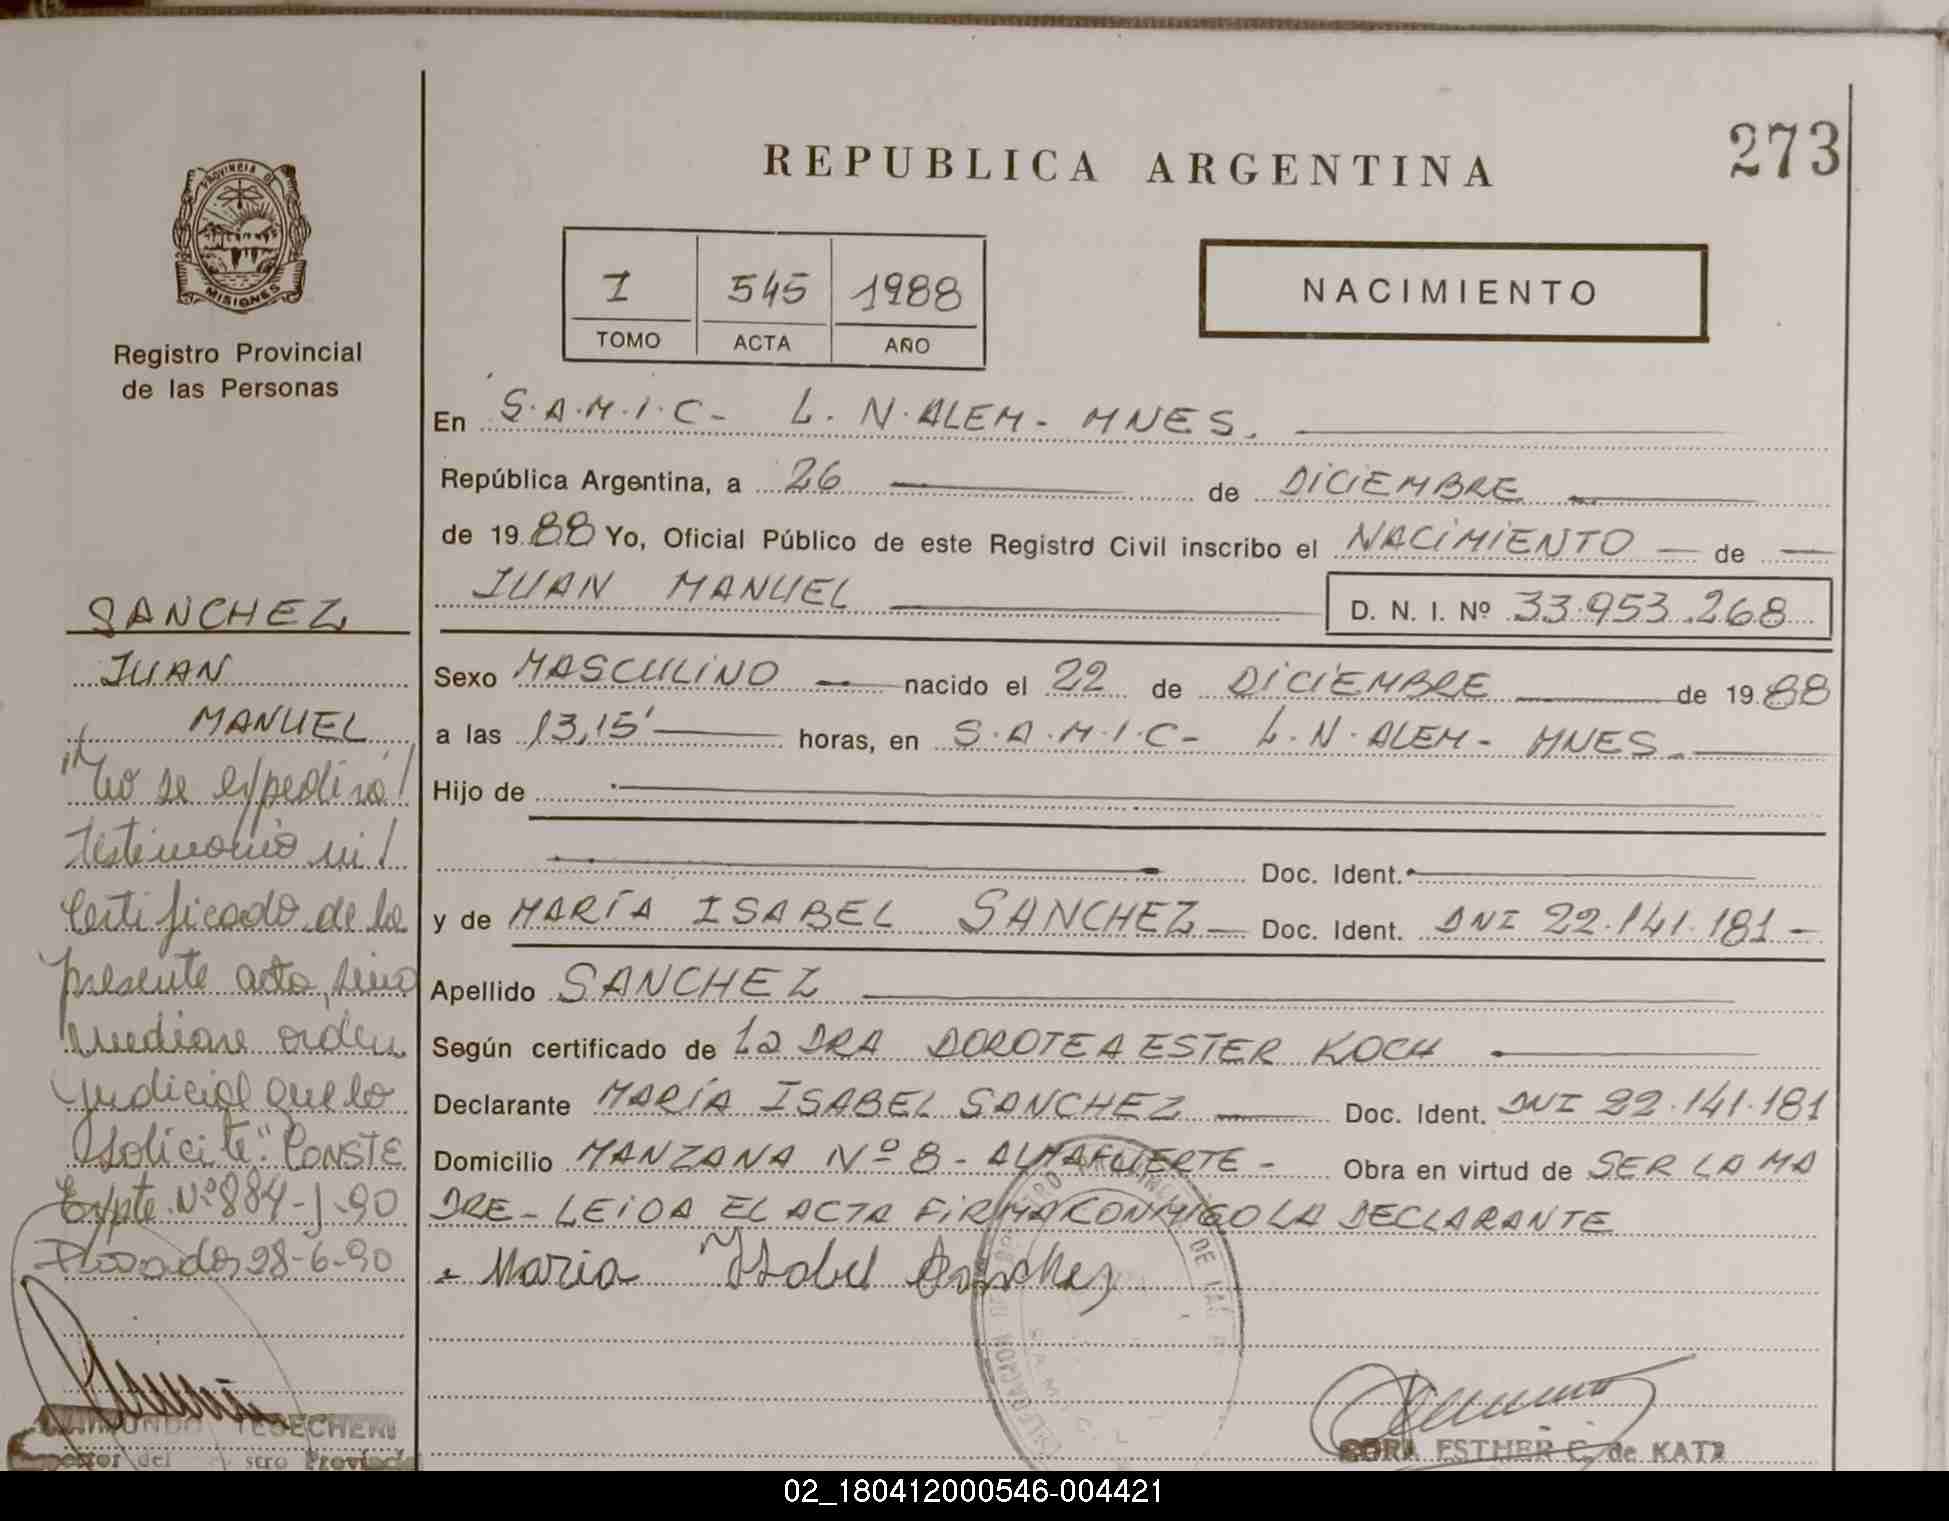 273
REPUBLICA ARGENTINA
PROVINCIA D
MISIONES
Registro Provincial
de las Personas
1 545 1988
TOMO ACTA AÑO
NACIMIENTO
En S.A.M.I.C- L.N.ALEM- MNES.
República Argentina, a 26 de DICIEMBRE
de 1988 Yo, Oficial Público de este Registro Civil inscribo el NACIMIENTO de
JUAN MANUEL D. N. I. Nº 33.953.268
Sexo MASCULINO nacido el 22 de DICIEMBRE de 1988
a las 13,15' horas, en S.A.M.I.C- L.N.ALEM- MNES.
Hijo de
Doc. Ident.
y de MARÍA ISABEL SANCHEZ Doc. Ident. DNI 22.141.181-
Apellido SANCHEZ
Según certificado de la DRA DOROTEA ESTER KOCH
Declarante MARÍA ISABEL SANCHEZ Doc. Ident. DNI 22.141.181
Domicilio MANZANA Nº 8- ALMAFUERTE- Obra en virtud de SER LA MA
DRE- LEIDA EL ACTA FIRMA CONMIGO LA DECLARANTE
Maria Isabel Sanchez
SANCHEZ
JUAN
MANUEL
"No se expedirá
testimonio ni
certificado de la
presente acta, sino
mediante orden
judicial que lo
solicite". CONSTE
Expte. Nº 884-J-90
Posadas 28-6-90
ESTHER C. de KATZ
02_180412000546-004421